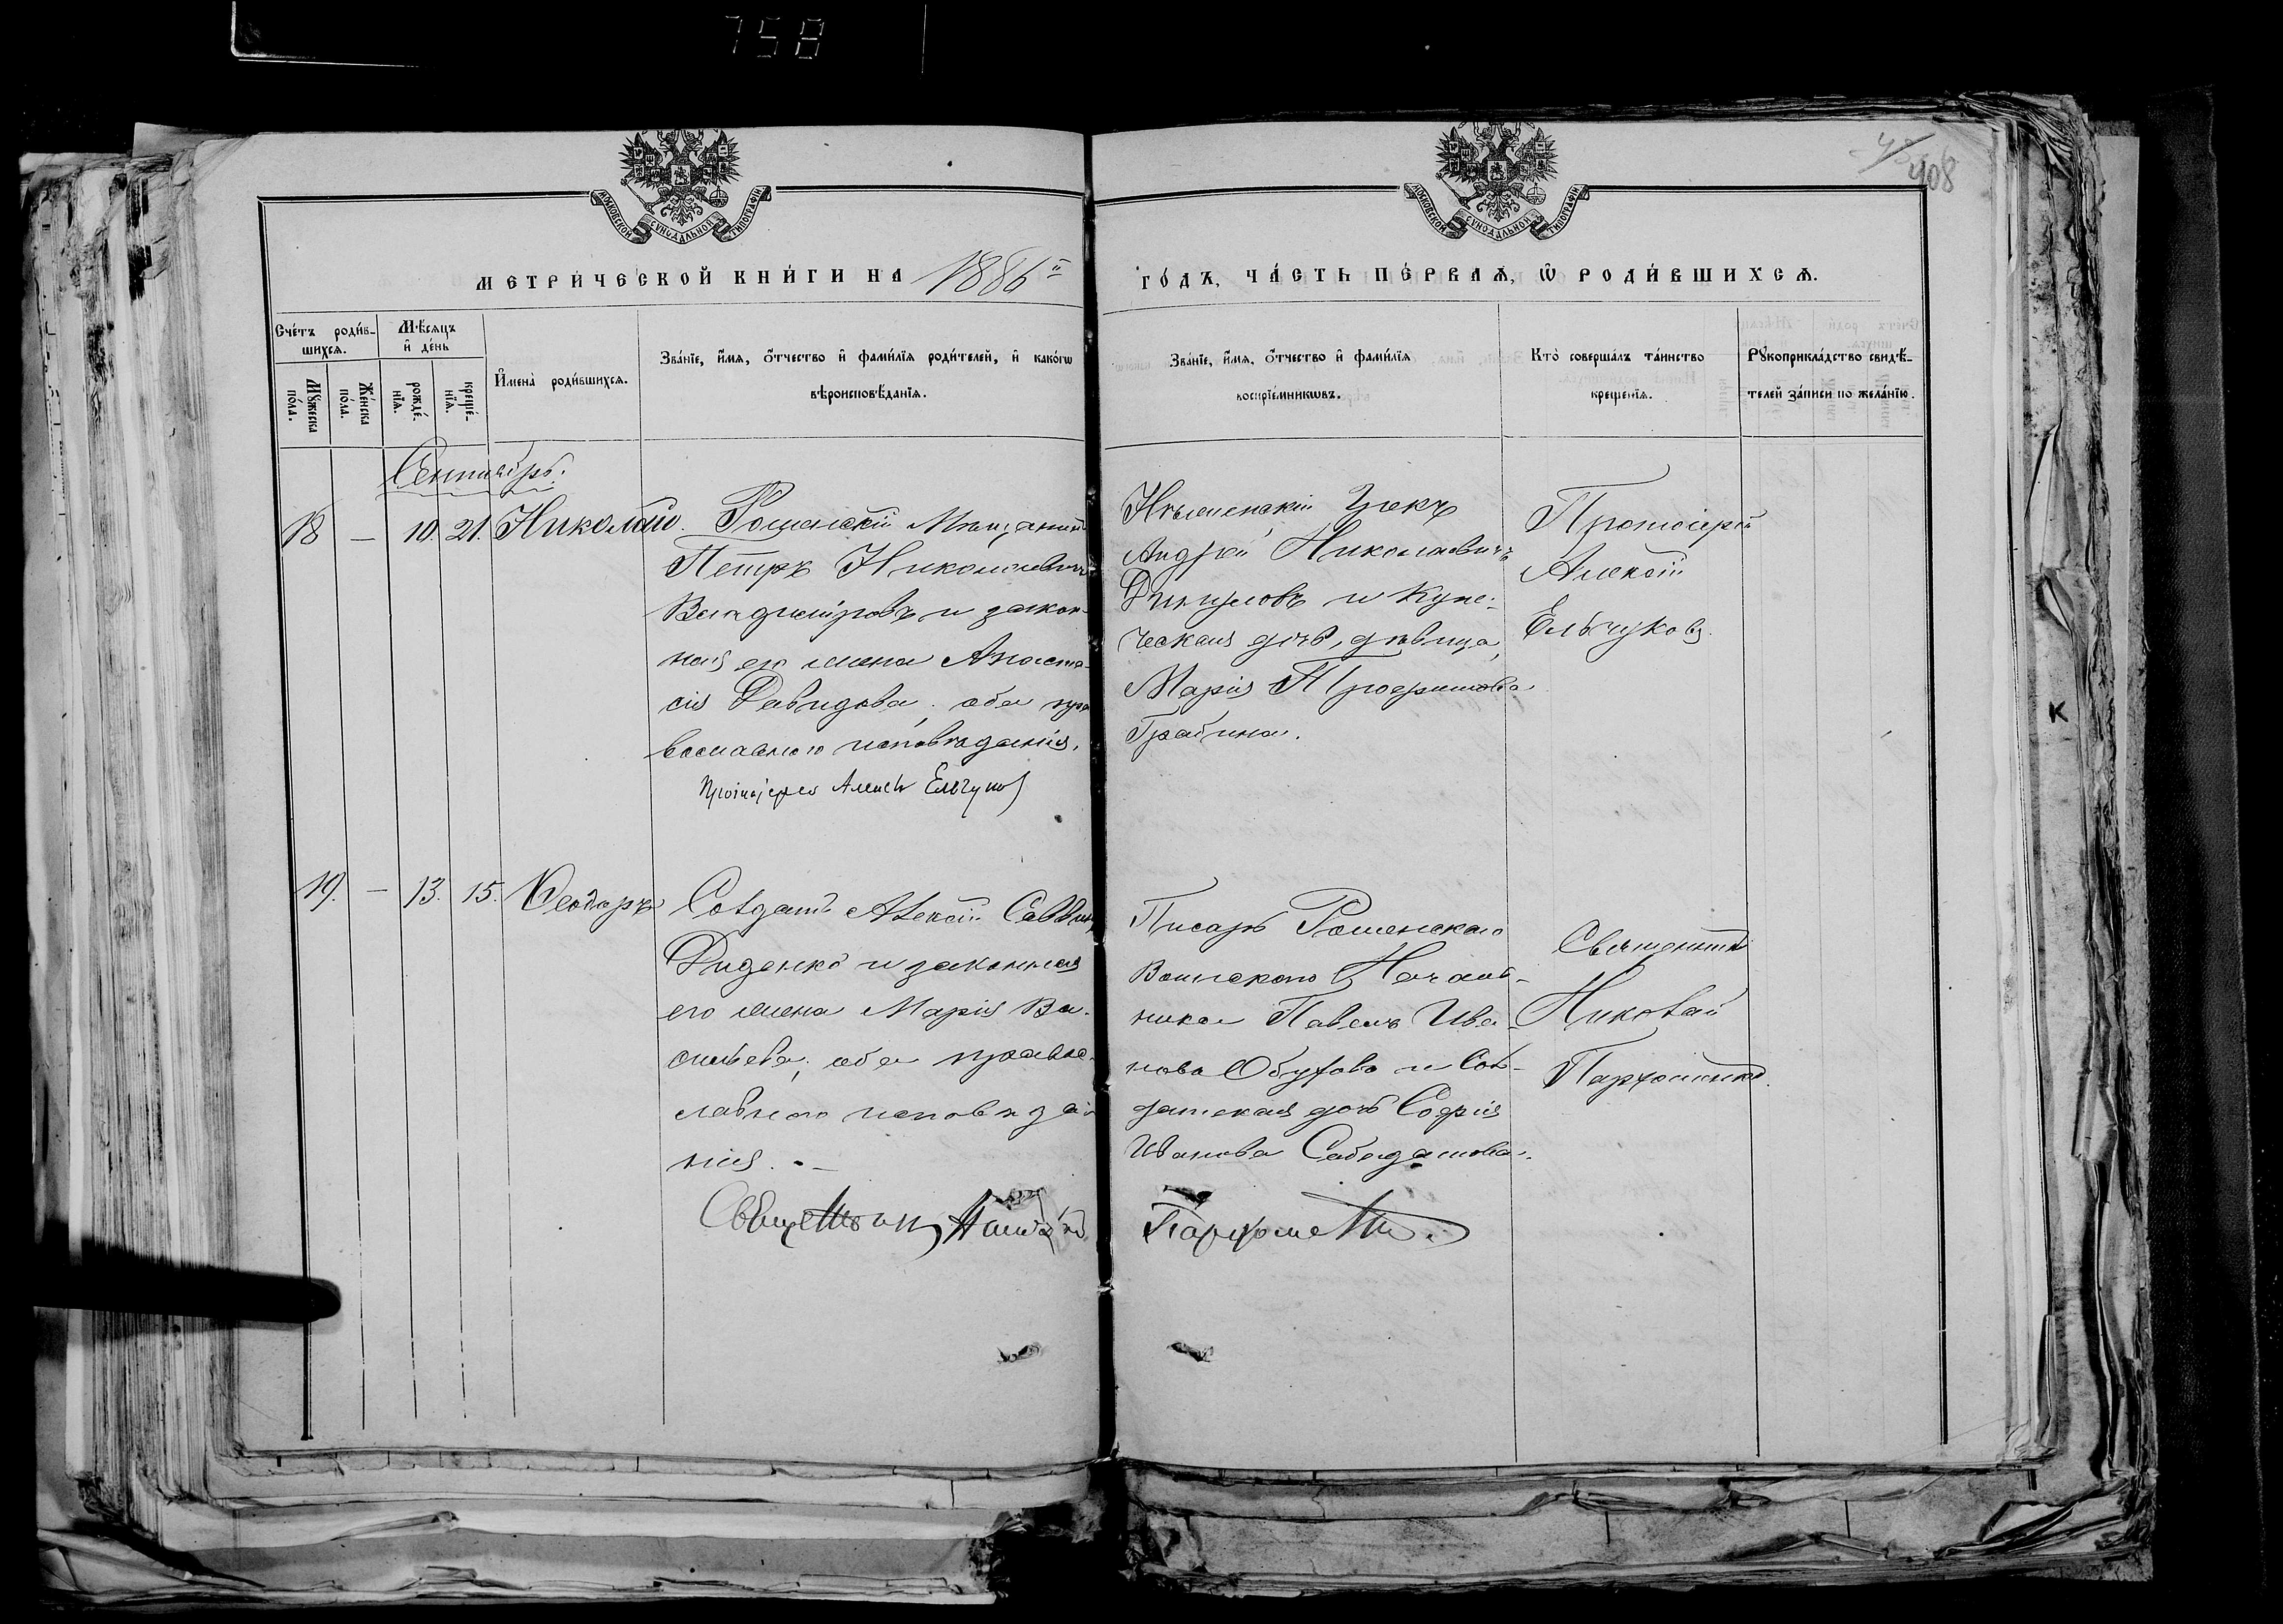 758
408
МОСКОВСКОЙ СѴНОДАЛЬНОЙ ТИПОГРАФІИ
МОСКОВСКОЙ СѴНОДАЛЬНОЙ ТИПОГРАФІИ
МЕТРИ́ЧЕСКОЙ КНИ́ГИ НА 1886й
ГО́ДЪ, ЧА́СТЬ ПЕ́РВАѦ, Ѡ҆ РОДИ́ВШИХСѦ.
Сче́тъ роди́в-
шихсѧ.
Мꙋ́жеска
по́ла.
Же́нска
по́ла.
Мѣ́сѧцъ
и҆ де́нь
рожде́-
нїѧ.
креще́-
нїѧ.
И҆мена̀ роди́вшихсѧ.
Зва́нїе, и҆́мѧ, ѻ҆́тчество и҆ фами́лїѧ роди́телей, и҆ како́гѡ
вѣроисповѣ́данїѧ.
Зва́нїе, и҆́мѧ, ѻ҆́тчество и҆ фами́лїѧ
воспрїе́мникѡвъ.
Кто̀ соверша́лъ та́инство
креще́нїѧ.
Рꙋкоприкла́дство свидѣ́-
телей за́писи по жела́нїю.
Сентябрь.
18 — 10. 21. Николай.
Роменскій Мѣщанинъ
Петръ Николаевичъ
Владиміровъ и закон-
ная его жена Анаста-
сія Давидова, оба пра
вославнаго исповѣданія.
Протоіерей Алексѣй Ельчуковъ
Грекъ
Андрей Николаевичъ
и Купе-
ческая дочь, дѣвица,
Марія Трофимова
Грабина.
Протоіерей
Алексѣй
Ельчуковъ.
19. — 13. 15. Ѳеодоръ
Солдатъ Алексѣй Саввинъ
Диденко и законная
его жена Марія Ва-
сильева, оба правос-
лавнаго исповѣда-
нія.
Священникъ Николай
Писарь Роменскаго
Воинскаго Началь-
ника Павелъ Ива-
новъ Обуховъ и Сол-
датская дочь Софія
Иванова
Пархоменко.
Священникъ
Николай
Пархоменко.
К